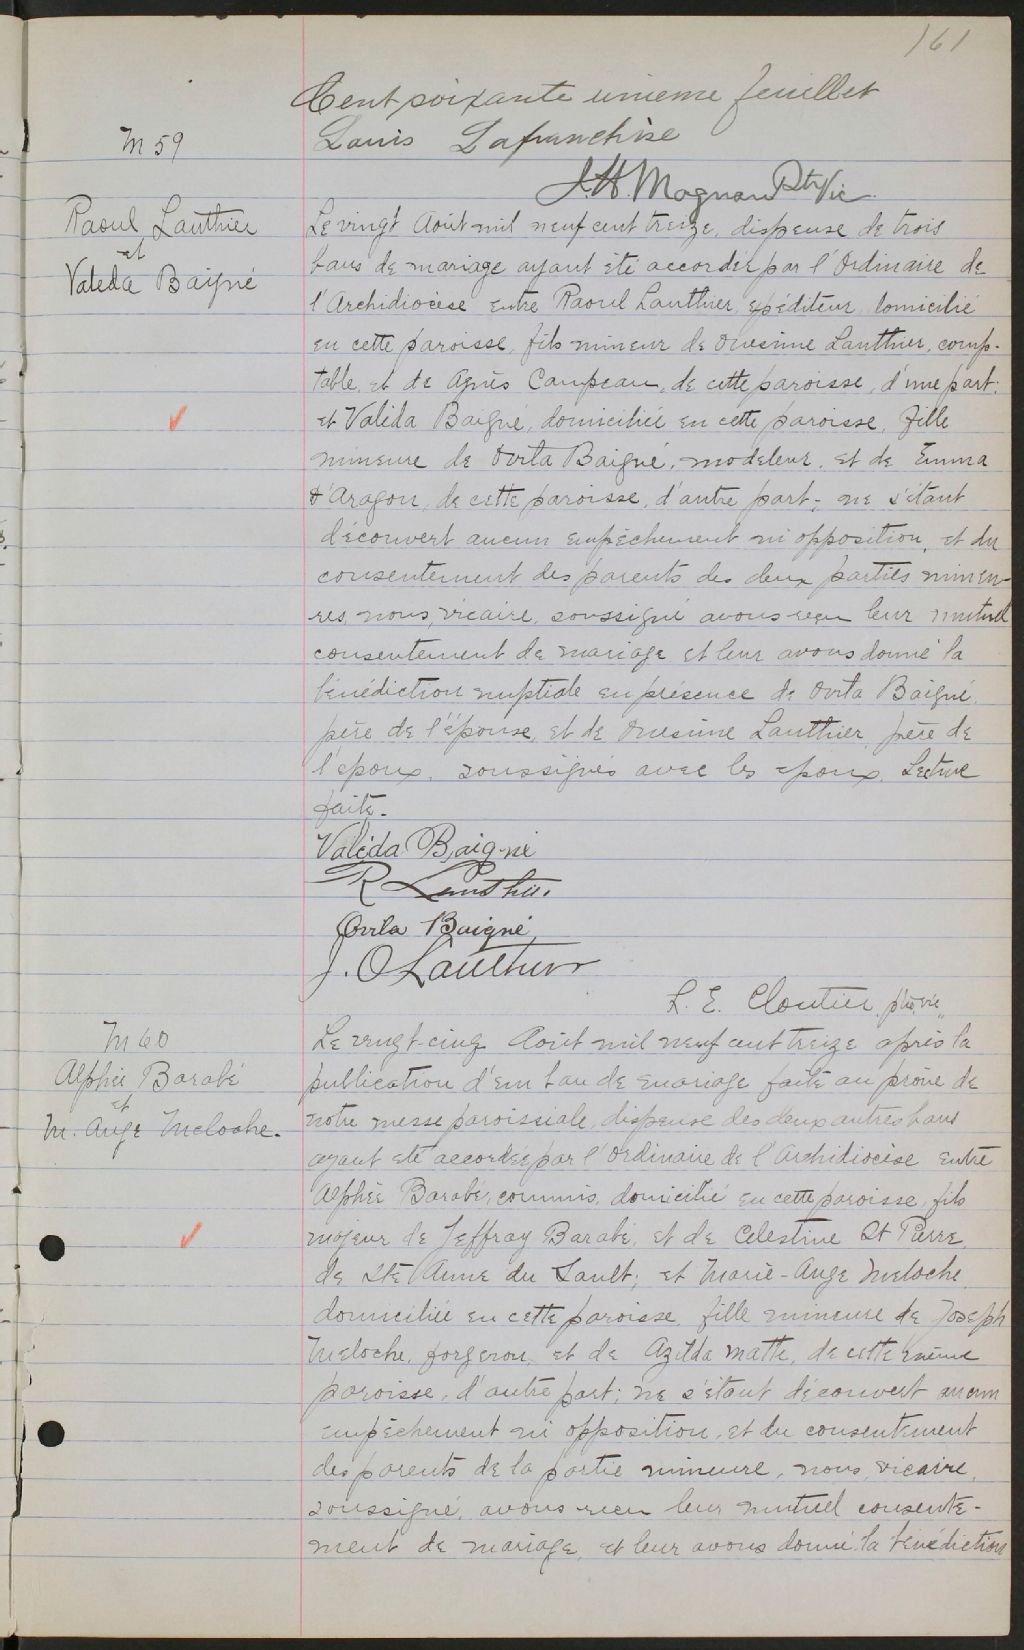 161
Cent soixante unieme feuillet
Louis Lafranchise
J. H. Magnan Ptre Vic.
M 59
Raoul Lauthier
et
Valeda Baigné
Le vingt Août mil neuf cent treize, dispense de trois
bans de mariage ayant été accordée par l'Ordinaire de
l'Archidiocèse entre Raoul Lauthier, expéditeur, domicilié
en cette paroisse, fils mineur de Onesime Lauthier, comp-
table, et de Agnès Campeau, de cette paroisse, d'une part;
et Valéda Baigné, domiciliée en cette paroisse, fille
mineure de Ovila Baigné, modeleur, et de Emma
d'Aragon, de cette paroisse, d'autre part; ne s'étant
découvert aucun empêchement ni opposition, et du
consentement des parents des deux parties mineu-
res, nous, vicaire, soussigné avons reçu leur mutuel
consentement de mariage et leur avons donné la
bénédiction nuptiale en présence de Ovila Baigné,
père de l'épouse, et de Onesime Lauthier, père de
l'époux, soussignés avec les époux. Lecture
faite.
Valéda Baigné
R Lauthier
Ovila Baigné
J. O Lauthier
L. E. Cloutier, ptre, vic,,
M 60
Alphée Barabé
et
M. Ange Meloche.
Le vingt-cinq Août mil neuf cent treize après la
publication d'un ban de mariage faite au prône de
notre messe paroissiale, dispense des deux autres bans
ayant été accordée par l'Ordinaire de l'Archidiocèse entre
Alphée Barabé, commis, domicilié en cette paroisse, fils
majeur de Jeffray Barabe, et de Celestine St Pierre,
de Ste Anne du Sault; et Marie-Ange Meloche,
domiciliée en cette paroisse, fille mineure de Joseph
Meloche, forgeron, et de Azilda Matte, de cette même
paroisse, d'autre part; ne s'étant découvert aucun
empêchement ni opposition, et du consentement
des parents de la partie mineure, nous, vicaire,
soussigné, avons reçu leur mutuel consente-
ment de mariage, et leur avons donné la bénédiction